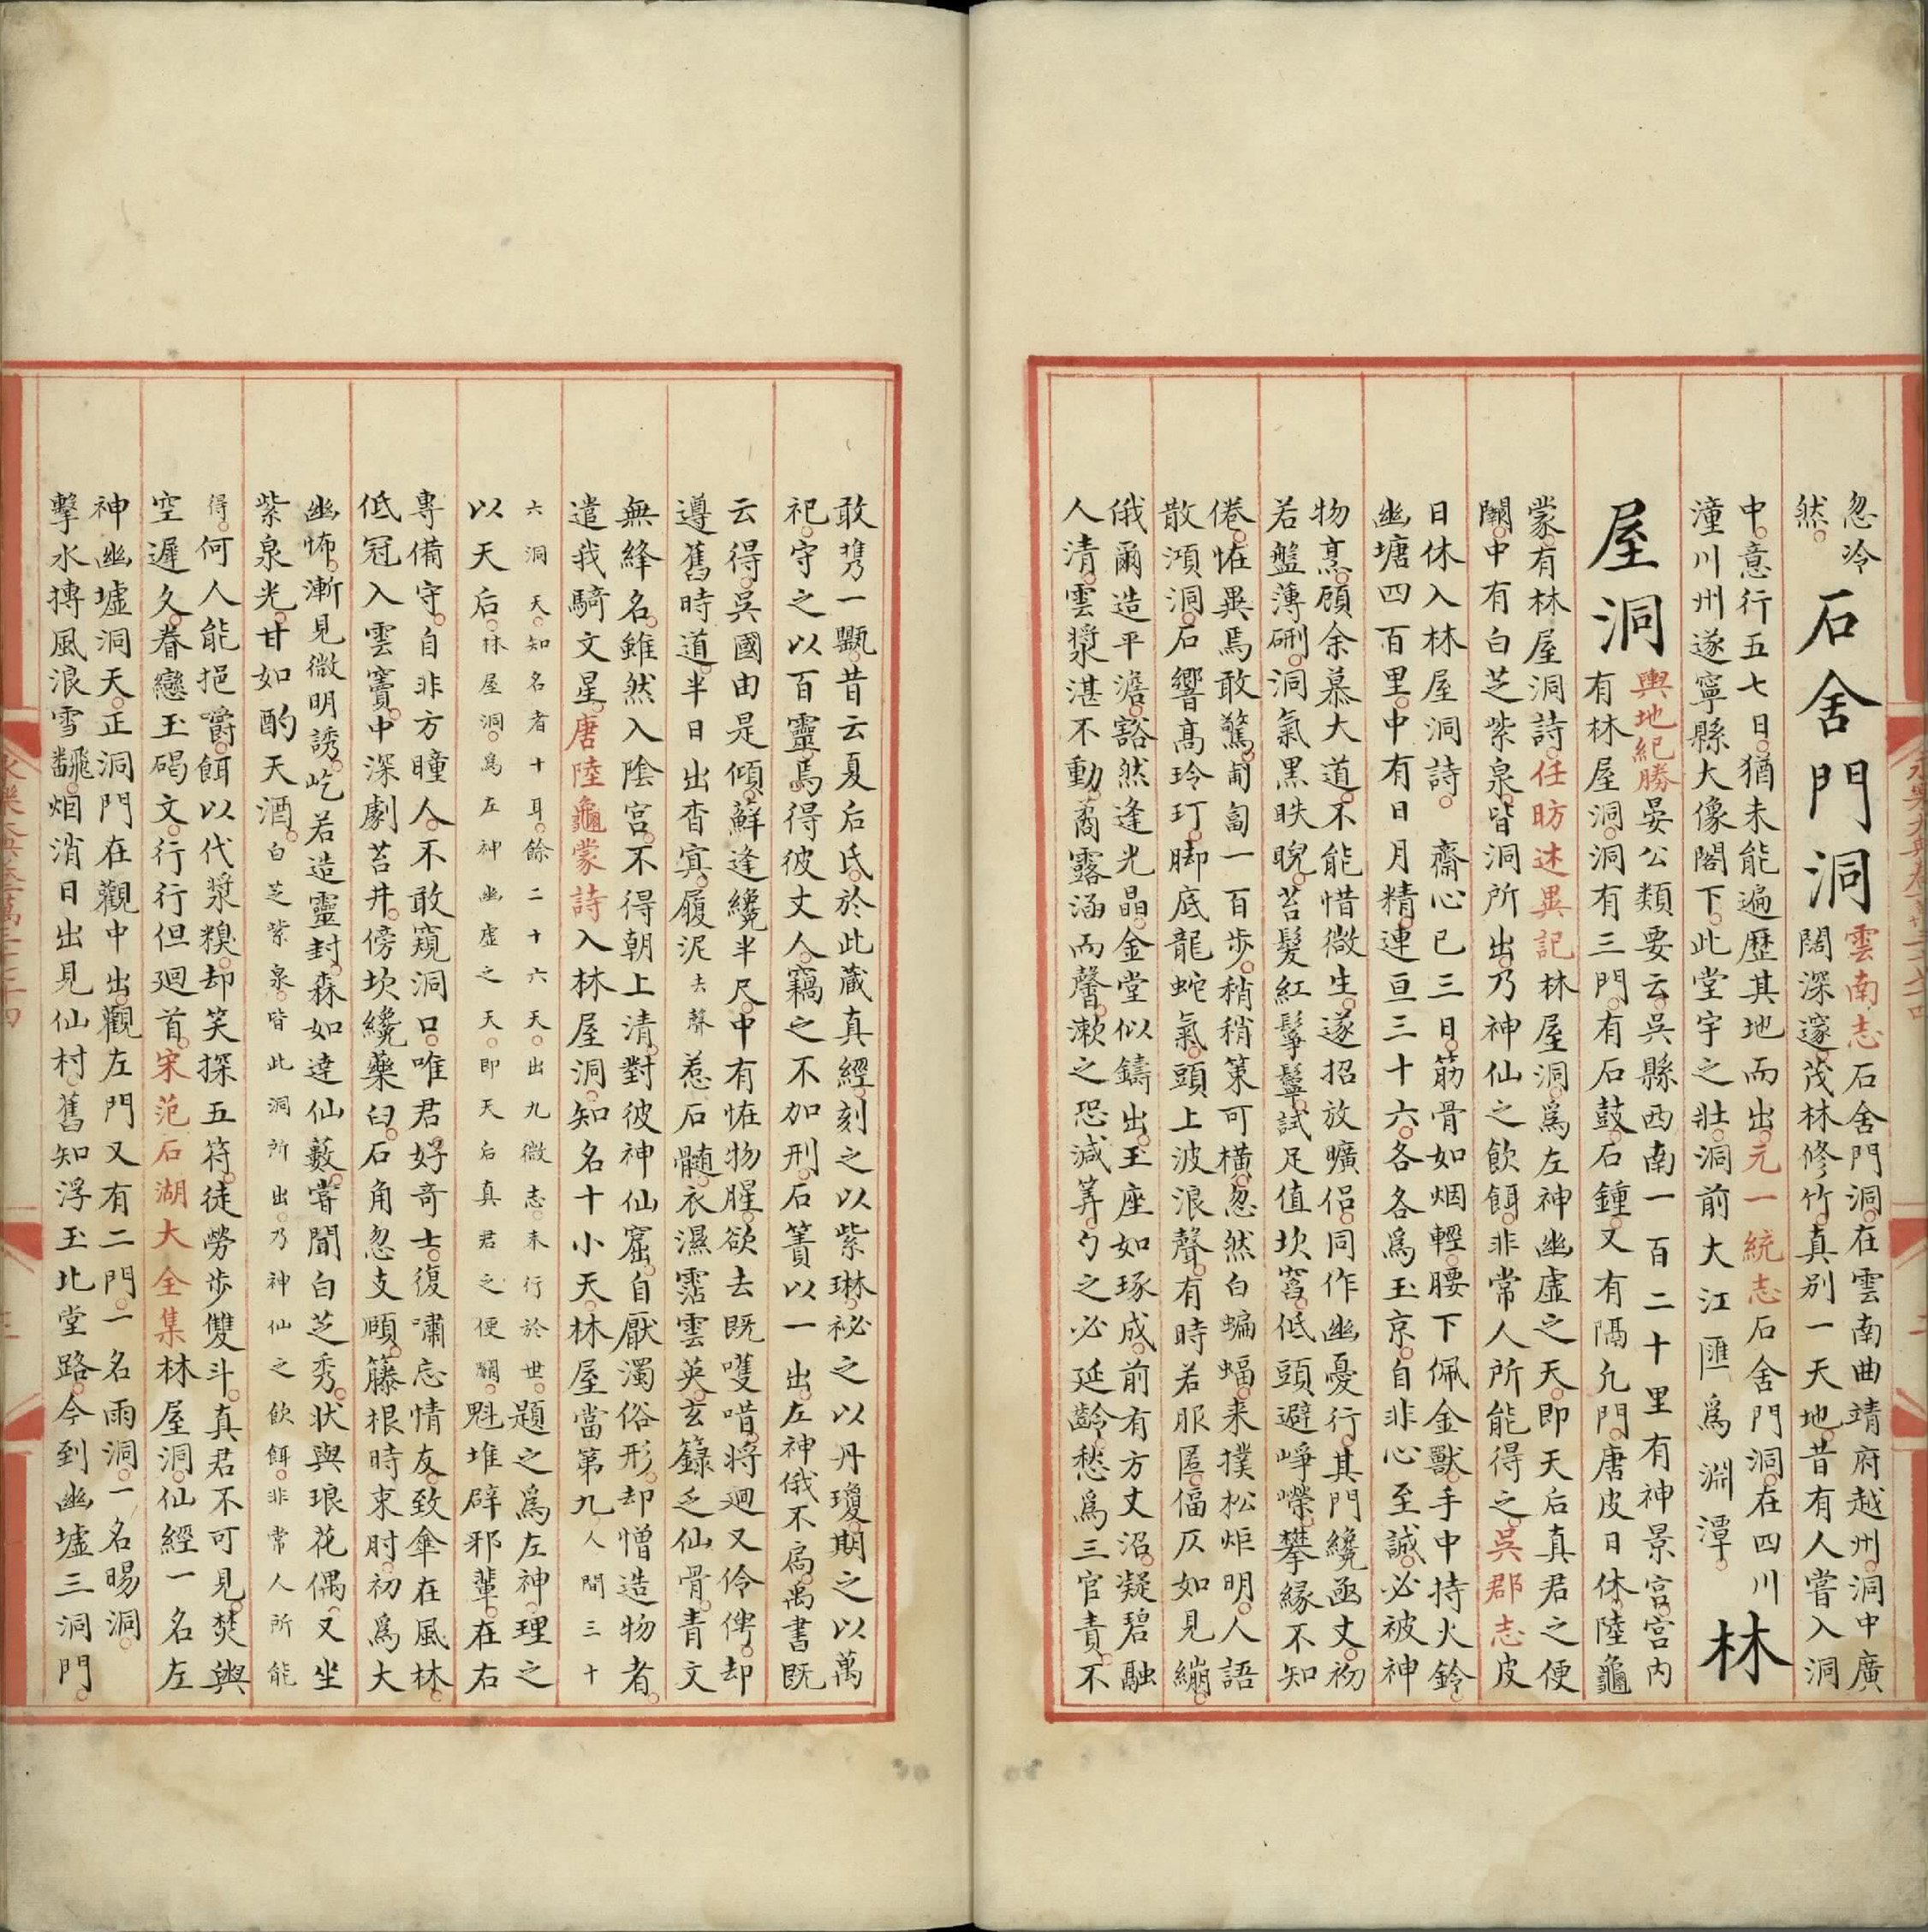 忽冷
然。
石舍門洞
雲南志石舍門洞。在雲南曲靖府越州。洞中廣
闊深邃。茂林修竹。真别一天地。昔有人嘗入洞
中。意行五七日。猶未能遍歷其地而出。元一統志石舍門洞。在四川
潼川州遂寧縣大像閣下。此堂宇之壯。洞前大江匯爲淵潭。
林
屋洞
輿地紀勝晏公類要云。吳縣西南一百二十里有神景宫。宫内
有林屋洞。洞有三門。有石鼓。石鍾。又有隔凢門。唐皮日休。陸龜
蒙。有林屋洞詩。任昉述異記林屋洞。爲左神幽虛之天。即天后真君之便
闕。中有白芝紫泉。皆洞所出。乃神仙之飲餌。非常人所能得之。吳郡志皮
日休入林屋洞詩。齋心已三日。筋骨如烟輕。腰下佩金獸。手中持火鈴。
幽塘四百里。中有日月精。連亘三十六。各各爲玉京。自非心至誠。必被神
物烹。顧余慕大道。不能惜微生。遂招放曠侣。同作幽憂行。其門纔函丈。初
若盤薄硎。洞氣黑眣䀩。苔髮紅鬡鬤。試足值坎窞。低頭避崢嶸。攀緣不知
倦。恠異焉敢驚。匍匐一百歩。稍稍策可横。忽然白蝙蝠。来撲松炬明。人語
散澒洞。石響高玲玎。脚底龍蛇氣。頭上波浪聲。有時若服匿。偪仄如見繃。
俄爾造平澹。豁然逢光晶。金堂似鑄出。玉座如琢成。前有方丈沼。凝碧融
人清。雲漿湛不動。䔥露涵而馨。漱之恐減筭。勺之必延齡。愁爲三官責。不
敢携一甖。昔云夏后氏。於此藏真經。刻之以紫琳。祕之以丹瓊。期之以萬
祀。守之以百靈。焉得彼丈人。竊之不加刑。石簣以一出。左神俄不扄。禹書既
云得。吳國由是傾。蘚逢纔半尺。中有恠物腥。欲去既嚄唶。將廻又伶俜。却
遵舊時道。半日出杳㝠。履泥去聲惹石髓。衣濕霑雲英。玄籙乏仙骨。青文
無絳名。雖然入陰宫。不得朝上清。對彼神仙窟。自厭濁俗形。却憎造物者。
遣我騎文星。唐陸龜蒙詩入林屋洞。知名十小天。林屋當第九人間三十
六洞天。知名者十耳。餘二十六天。出九微志。未行於世。題之爲左神。理之
以天后。林屋洞。爲左神幽虛之天。即天后真君之便闕。魁堆辟邪輩。在右
專備守。自非方瞳人。不敢窺洞口。唯君好奇士。復嘯忘情友。致傘在風林。
低冠入雲竇。中深劇苔井。傍坎纔藥臼。石角忽支頤。籐根時束肘。初爲大
幽怖。漸見微明誘。屹若造靈封。森如達仙藪。嘗聞白芝秀。狀與琅花偶。又坐
紫泉光。甘如酌天酒。白芝紫泉。皆此洞所出。乃神仙之飲餌。非常人所能
得。何人能挹嚼。餌以代漿糗。却笑探五符。徒勞歩雙斗。真君不可見。焚輿
空遲久。眷戀玉碣文。行行但廻首。宋范石湖大全集林屋洞。仙經一名左
神幽墟洞天。正洞門在觀中出。觀左門又有二門。一名雨洞。一名暘洞。
擊水摶風浪雪飜。烟消日出見仙村。舊知浮玉北堂路。今到幽墟三洞門。